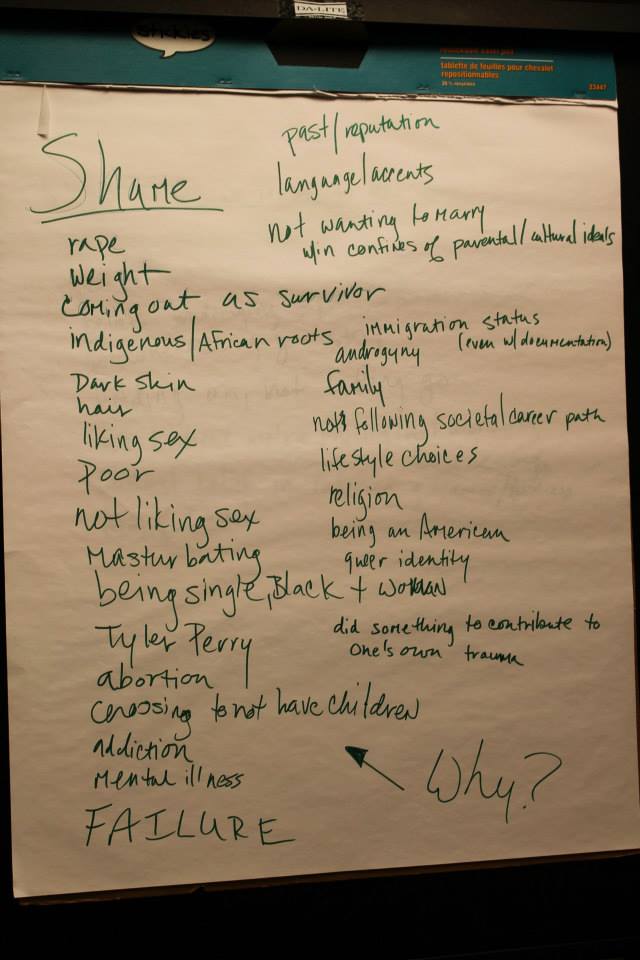 DA-LITE
tablette de feuilles pour chevalet
repositionnables
33447
Shame
rape
weight
coming out as survivor
indigenous/African roots
Dark skin
hair
liking sex
Poor
not liking sex
Masturbating
being single, Black + woman
Tyler Perry
abortion
Choosing to not have children
addiction
Mental illness
FAILURE
past/reputation
language/accents
not wanting to marry
w/in confines of parental/cultural ideals
immigration status
(even w/documentation)
androgyny
family
not following societal career path
lifestyle choices
religion
being an American
queer identity
did something to contribute to
one's own trauma
Why?